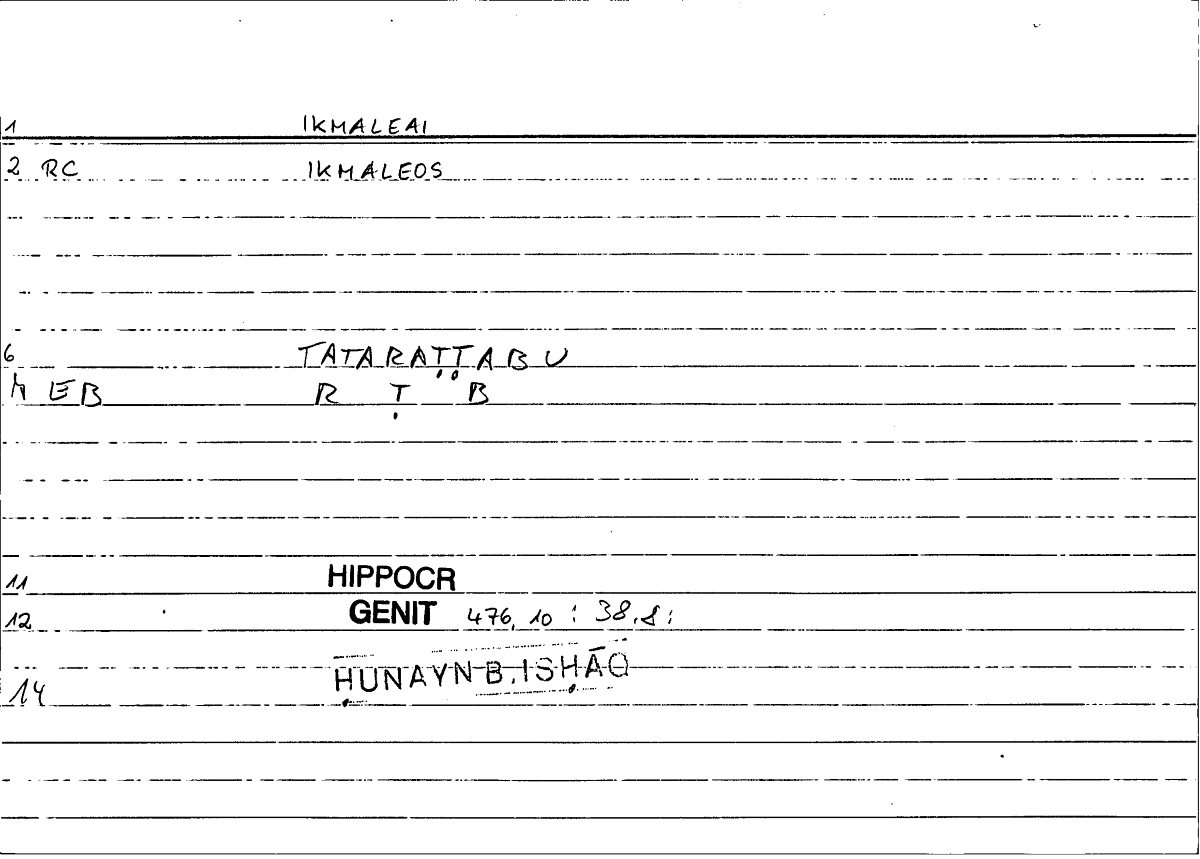 1 IKMALEAI
2 RC IKMALEOS
6 TATARAṬṬABU
EB R Ṭ B
11 HIPPOCR
12 GENIT 476, 10 : 38,8;
14 ḤUNAYN B. ISḤĀQ